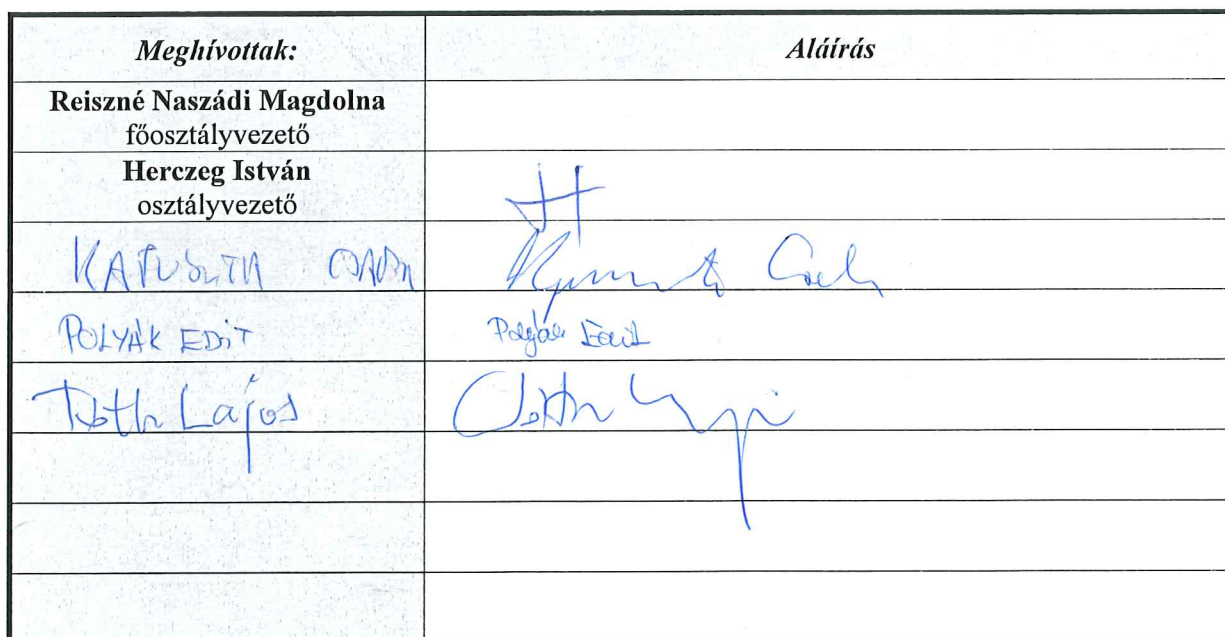 Meghívottak: Aláírás
Reiszné Naszádi Magdolna
főosztályvezető
Herczeg István
osztályvezető
KAPUSZTA CSABA
POLYÁK EDIT Polyák Edit
Tóth Lajos